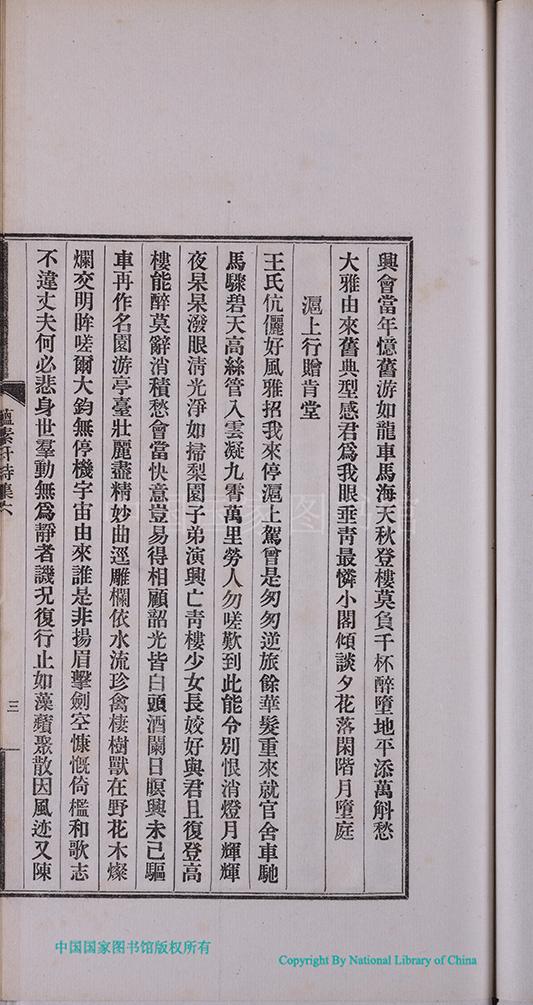 興會當年憶舊游如龍車馬海天秋登樓莫負千杯醉墮地平添萬斛愁
大雅由來舊典型感君爲我眼垂靑最憐小閣傾談夕花落閑階月墮庭
滬上行贈肯堂
王氏伉儷好風雅招我來停滬上駕曾是匆匆逆旅餘華髮重來就官舍車馳
馬驟碧天高絲管入雲凝九霄萬里勞人勿嗟歎到此能令別恨消燈月輝輝
夜杲杲潑眼淸光淨如掃梨園子弟演興亡靑樓少女長姣好與君且復登高
樓能醉莫辭消積愁會當快意豈易得相顧韶光皆白頭酒闌日暝興未已驅
車再作名園游亭臺壯麗盡精妙曲逕雕欄依水流珍禽棲樹獸在野花木燦
爛交明眸嗟爾大鈞無停機宇宙由來誰是非揚眉擊劍空慷慨倚檻和歌志
不違丈夫何必悲身世羣動無爲靜者譏況復行止如藻蘋聚散因風迹又陳
蘊素軒詩集六
三
中国国家图书馆版权所有
Copyright By National Library of China